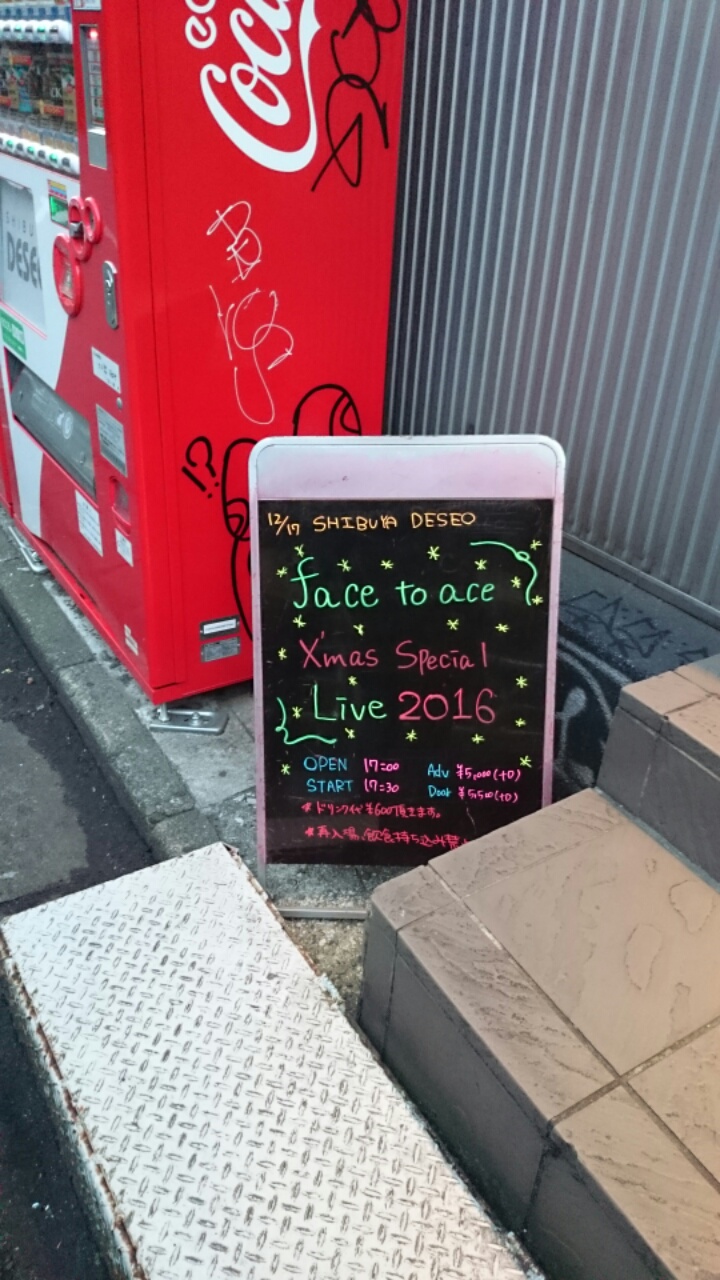 Coca
SHIBU
DESE
!?
12/17 SHIBUYA DESEO
face to ace
X'mas Special
Live 2016
OPEN 17:00 Adv ¥5,000(+D)
START 17:30 Door ¥5,500(+D)
*ドリンク代¥600頂きます。
*再入場、飲食持ち込み禁